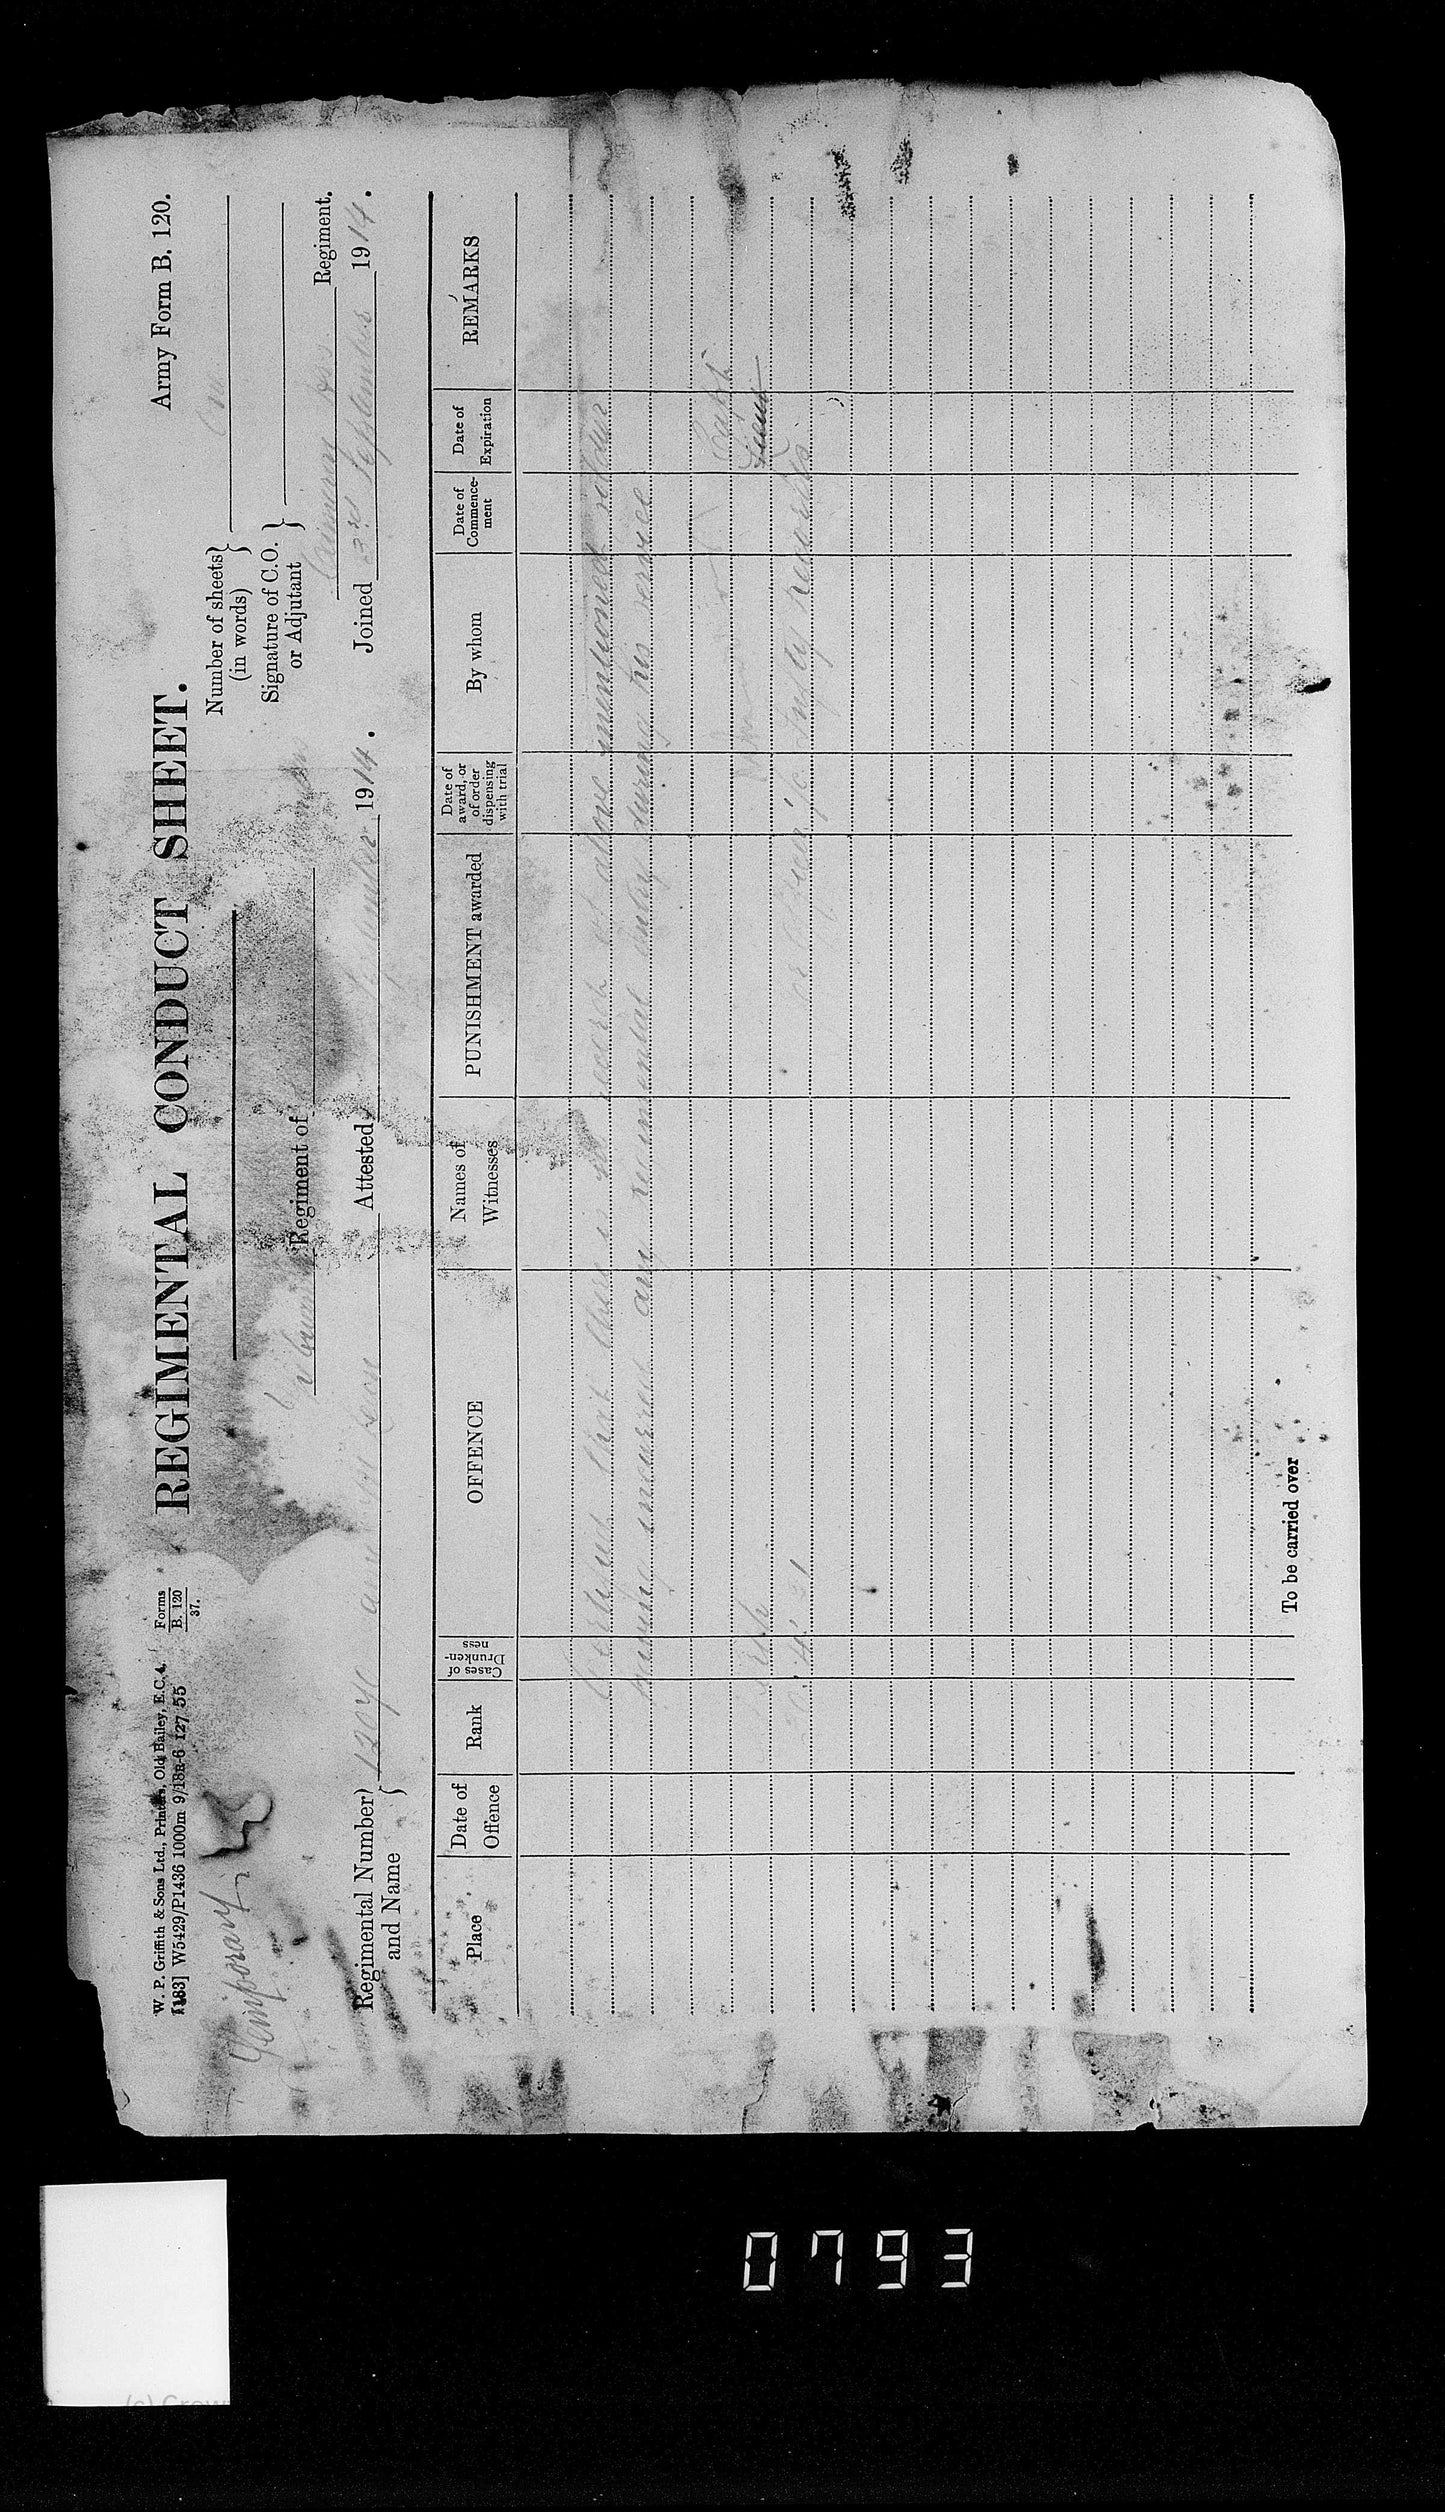 W. P. Griffith & Sons Ltd., Printers, Old Bailey, E.C. 4.
[183] W5429/P1436 1000m 9/18R-6 127 55
Forms
B. 120
37.
REGIMENTAL CONDUCT SHEET.
Army Form B. 120.
Temporary
Number of sheets (in words)
One
Signature of C.O. or Adjutant
Regiment of
Regiment.
Regimental Number and Name
Attested
1914.
Joined
3rd September 1914.
Place
Date of Offence
Rank
Cases of Drunkenness
OFFENCE
Names of Witnesses
PUNISHMENT awarded
Date of award, or of order dispensing with trial
By whom
Date of Commencement
Date of Expiration
REMARKS
Certified that there is no record of above mentioned soldier
having incurred any regimental entry during his service
Perth
Capt
Lieut
for Officer i/c Infty Records
To be carried over
0793